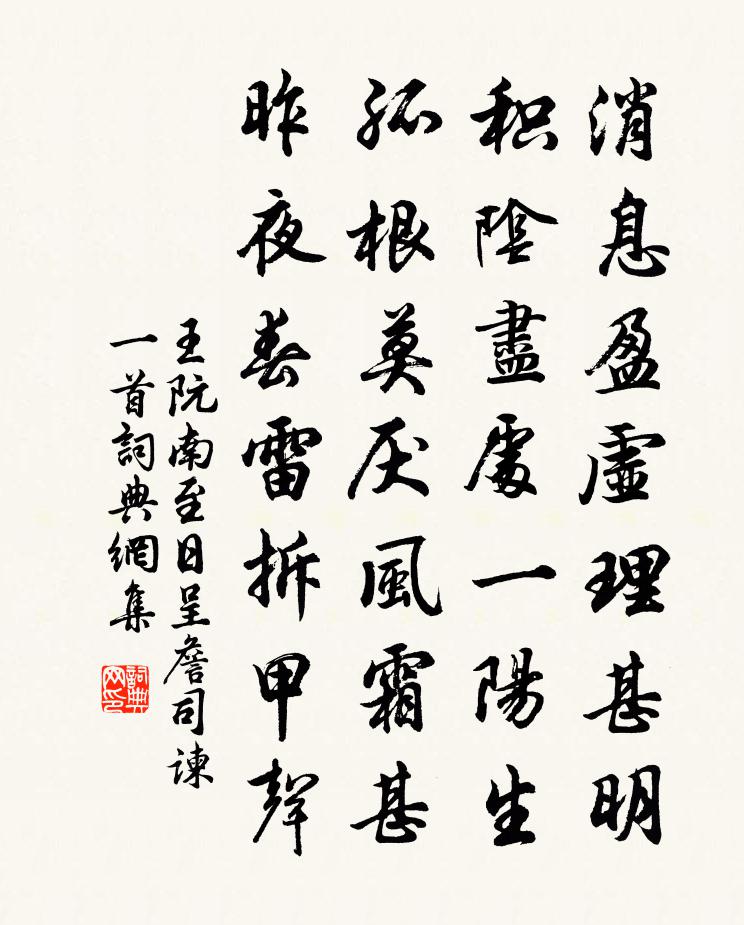 消息盈虛理甚明
积陰盡處一陽生
孤根莫厌風霜甚
昨夜春雷拆甲聲
王阮南至日呈詹司諫
一首詞典網集
詞典
网印